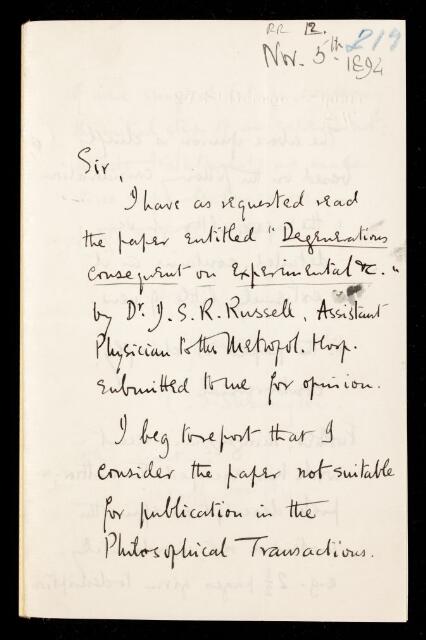 RR 12.
219
Nov. 5th 1894
Sir,
I have as requested read
the paper entitled "Degenerations
consequent on Experimental &c."
by Dr. J. S. R. Russell, Assistant
Physician to the Metropol. Hosp.
submitted to me for opinion.
I beg to report that I
consider the paper not suitable
for publication in the
Philosophical Transactions.